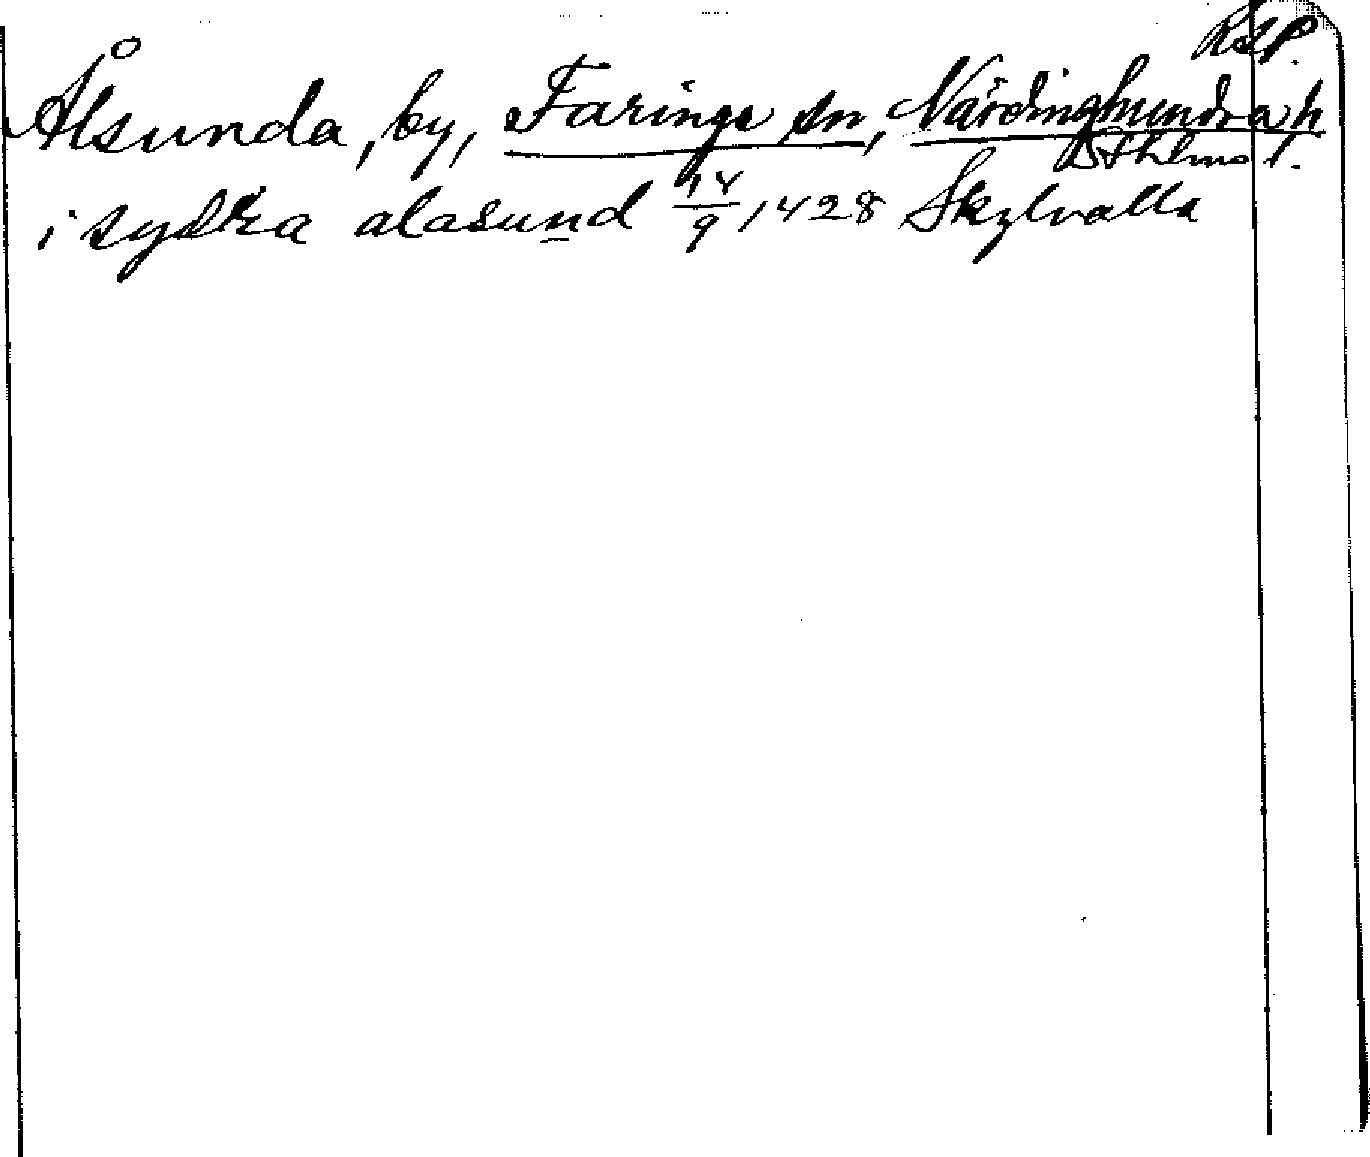 RAP.
Ålsunda, by, Faringe sn, Närdinghundra h
Sthlms l.
i sydra alasund 14/9 1428 Skylvalla